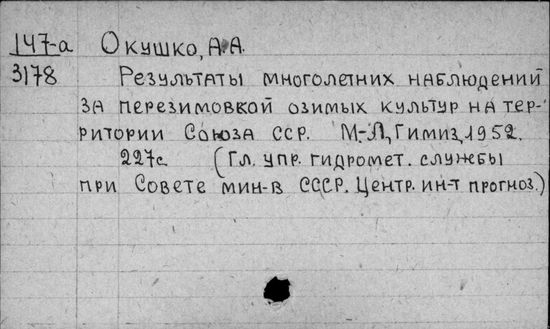 147-а Окушко, А.А.
3178 Результаты многолетних наблюдений
за перезимовкой озимых культур на тер-
ритории Союза ССР. М.-Л, Гимиз, 1952.
227с. (Гл. упр. гидромет. службы
при Совете мин-в СССР. Центр. ин-т прогноз.)